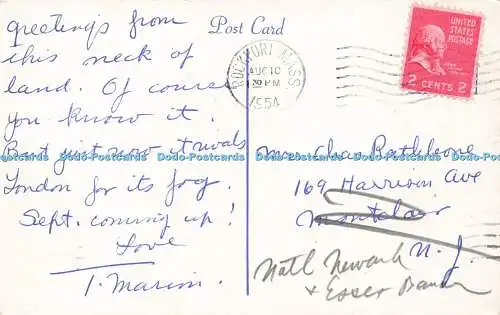 greetings from
this neck of
land. Of course
you know it.
But just now it rivals
London for its fog.
Sept. coming up!
Love
T. Marion.
Post Card
ROCKPORT MASS
AUG 10
30 PM
1954
UNITED
STATES
POSTAGE
2 CENTS 2
Mr. Chas Rathbone
169 Harrison Ave
Montclair
N. J.
Natl Newark
+ Essex
Dodo-Postcards Dodo-Postcards Dodo-Postcards Dodo-Postcards Dodo-Postcards Dodo-Postcards